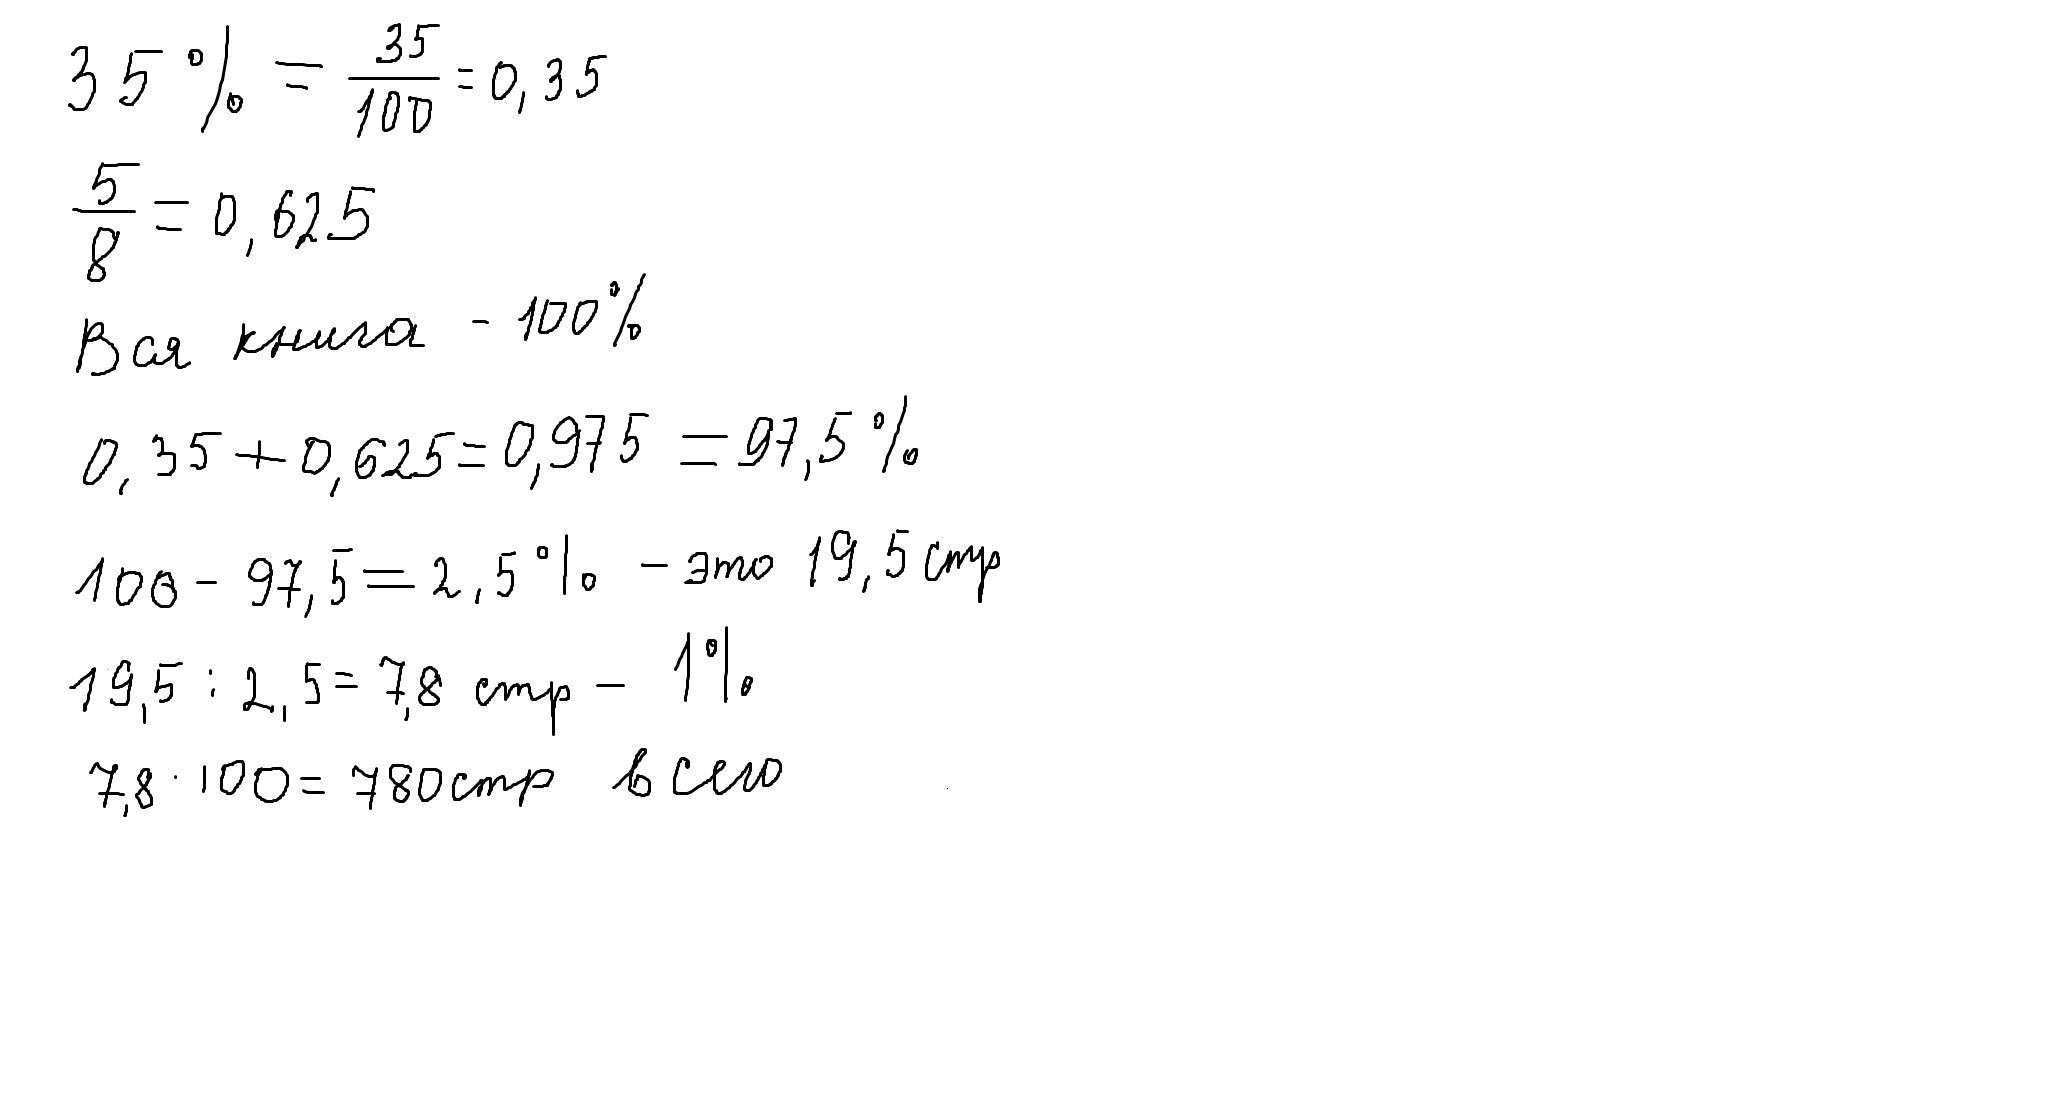 35% = 35/100 = 0,35
5/8 = 0,625
Вая книга - 100%
0,35 + 0,625 = 0,975 = 97,5%
100 - 97,5 = 2,5% - это 19,5 стр
19,5 : 2,5 = 7,8 стр - 1%
7,8 · 100 = 780 стр всего